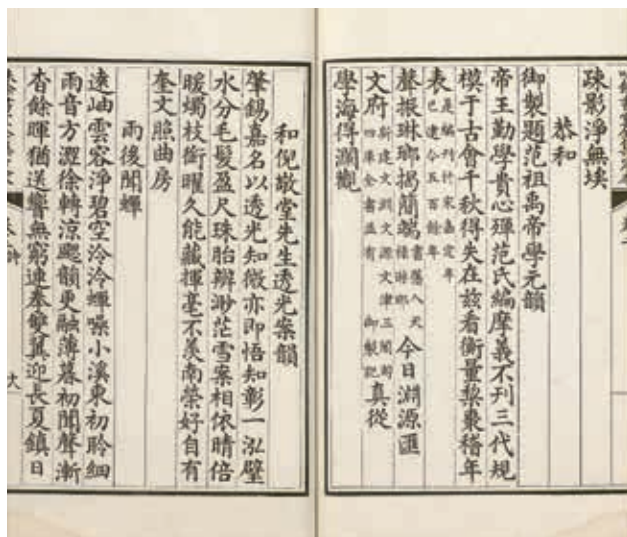 疎影淨無埃
恭和
御製題范祖禹帝學元韻
帝王勤學貴心殫范氏編摩義不刊三代規
模于古會千秋得失在茲看衡量槩稽年
表是編刊行宋嘉定年已逮今五百餘年
聲振琳瑯揭簡端 今日淵源匯
文府新建文淵文源文津三閣四庫全書並有御製記真從
學海得瀾觀
和倪敬堂先生透光案韻
肇錫嘉名以透光知微亦即悟知彰一泓壁
水分毛髮盈尺珠胎辨渺茫雪案相依晴倍
暖燭枝銜曜久能藏揮毫不羨南榮好自有
奎文照曲房
雨後聞蟬
遠岫雲容淨碧空泠泠蟬噪小溪東初聆細
雨音方澀徐轉涼颸韻更融薄暮初聞聲漸
杳餘暉猶送響無窮連拳雙翼迎長夏鎮日